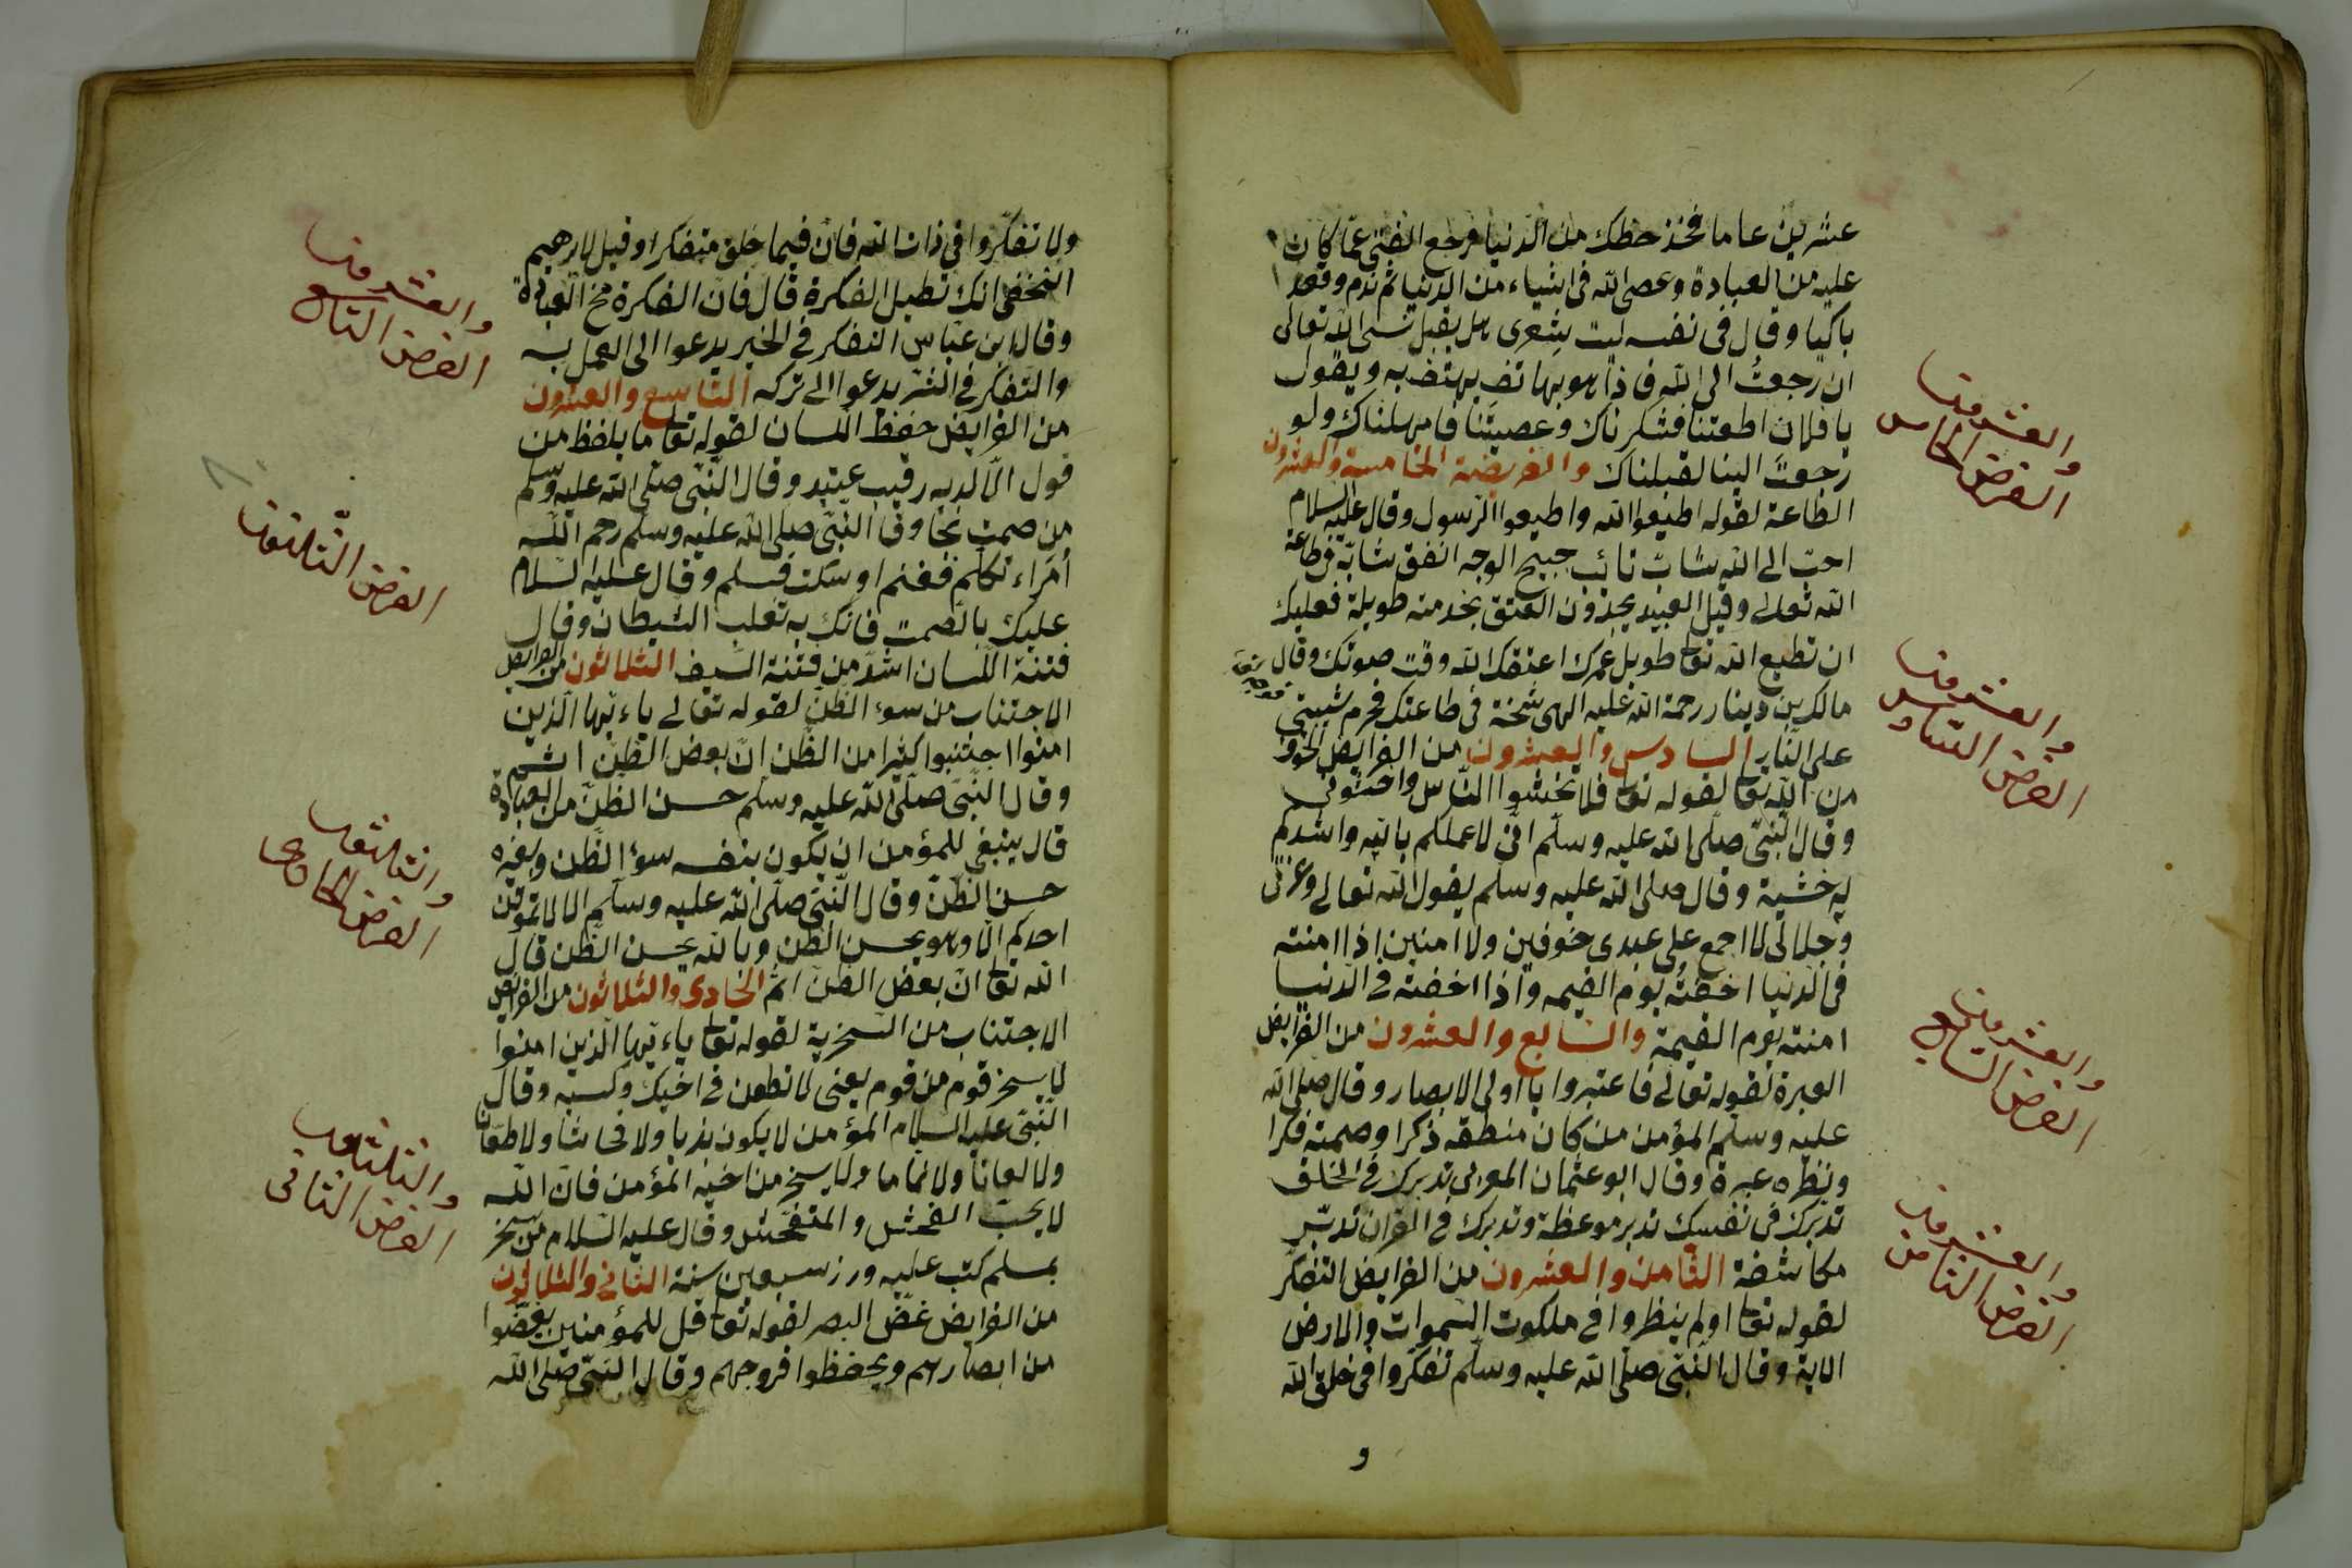 عشرين عاما فخذ حظك من الدنيا فرجع الفتى عما كان
عليه من العبادة وعصى الله فى اشياء من الدنيا ثم ندم وقعد
باكيا وقال فى نفسه ليت شعرى هل يقبلنى الله تعالى
ان رجعت الى الله فاذا هو بهاتف يهتف به ويقول
يا فلان اطعتنا فشكرناك وعصيتنا فامهلناك ولو
رجعت الينا لقبلناك والفريضة الخامسة والعشرون
الطاعة لقوله اطيعوا الله واطيعوا الرسول وقال عليه السلام
احب الى الله شاب تائب صبيح الوجه انفق شبابه فى طاعة
الله تعالى وقيل العبيد يجدون العتق بخدمة طويلة فعليك
ان تطيع الله تعا طويل عمرك اعتقك الله وقت موتك وقال
مالك بن دينار رحمة الله عليه الهى شخت فى طاعتك فحرم شيبتى
على النار السادس والعشرون من الفرايض الخوف
من الله تعا لقوله تعا فلا تخشوا الناس واخشونى
وقال النبى صلى الله عليه وسلم انى لاعملكم بالله واشدكم
له خشية وقال صلى الله عليه وسلم يقول الله تعالى وعزتى
وجلالى لا اجمع على عبدى خوفين ولا امنين اذا امنته
فى الدنيا اخفته يوم القيمه واذا اخفته فى الدنيا
امنته يوم القيمة والسابع والعشرون من الفرايض
العبرة لقوله تعالى فاعتبروا يا اولى الابصار وقال صلى الله
عليه وسلم المؤمن من كان منطقه ذكرا وصمته فكرا
ونظره عبرة وقال ابو عثمان المغربى تدبرك فى الخلق
تدبرك فى نفسك تدبر موعظة وتدبرك فى القران تدبر
مكاشفة الثامن والعشرون من الفرايض التفكر
لقوله تعا اولم ينظروا فى ملكوت السموات والارض
الاية وقال النبى صلى الله عليه وسلم تفكروا فى خلق الله
و
والعشرون
الفرض الخامس
والعشرون
الفرض السادس
والعشرون
الفرض السابع
والعشرون
الفرض الثامن
ولا تفكروا فى ذات الله فان فيما خلق متفكرا وقيل لابرهيم
النخعى انك تطيل الفكرة قال فان الفكرة مخ العبادة
وقال ابن عباس التفكر فى الخير يدعوا الى العمل به
والتفكر فى الشر يدعوا الى تركه التاسع والعشرون
من الفرايض حفظ اللسان لقوله تعا ما يلفظ من
قول الا لديه رقيب عتيد وقال النبى صلى الله عليه وسلم
من صمت نجا وقا النبى صلى الله عليه وسلم رحم الله
امراء تكلم فغنم او سكت فسلم وقال عليه السلام
عليك بالصمت فانك به تغلب الشيطان وقال
فتنة اللسان اشد من فتنة السيف الثلاثون من الفرايض
الاجتناب من سوء الظن لقوله تعالى ياءيها الذين
امنوا اجتنبوا كثيرا من الظن ان بعض الظن اثم
وقال النبى صلى الله عليه وسلم حسن الظن من العبادة
قال ينبغى للمؤمن ان يكون بنفسه سوء الظن وبغيره
حسن الظن وقال النبى صلى الله عليه وسلم الا لا تموتن
احدكم الا وهو يحسن الظن وبالله يحسن الظن قال
الله تعا ان بعض الظن اثم الحادى والثلاثون من الفرايض
الاجتناب من السخرية لقوله تعا ياءيها الذين امنوا
لا يسخر قوم من قوم يعنى لا تطعن فى اخيك وكسبه وقال
النبى عليه السلام المؤمن لا يكون بذيا ولا فحاشا ولا طعانا
ولا لعانا ولا نماما ولا يسخر من اخيه المؤمن فان الله
لا يحب الفحش والمتفحش وقال عليه السلام من سخر
بمسلم كتب عليه وزر سبعين سنة الثانى والثلاثون
من الفرايض غض البصر لقوله تعا قل للمؤمنين يغضوا
من ابصارهم ويحفظوا فروجهم وقال النبى صلى الله
والعشرون
الفرض التاسع
الفرض الثلثون
والثلثون
الفرض الحادى
والثلثون
الفرض الثانى